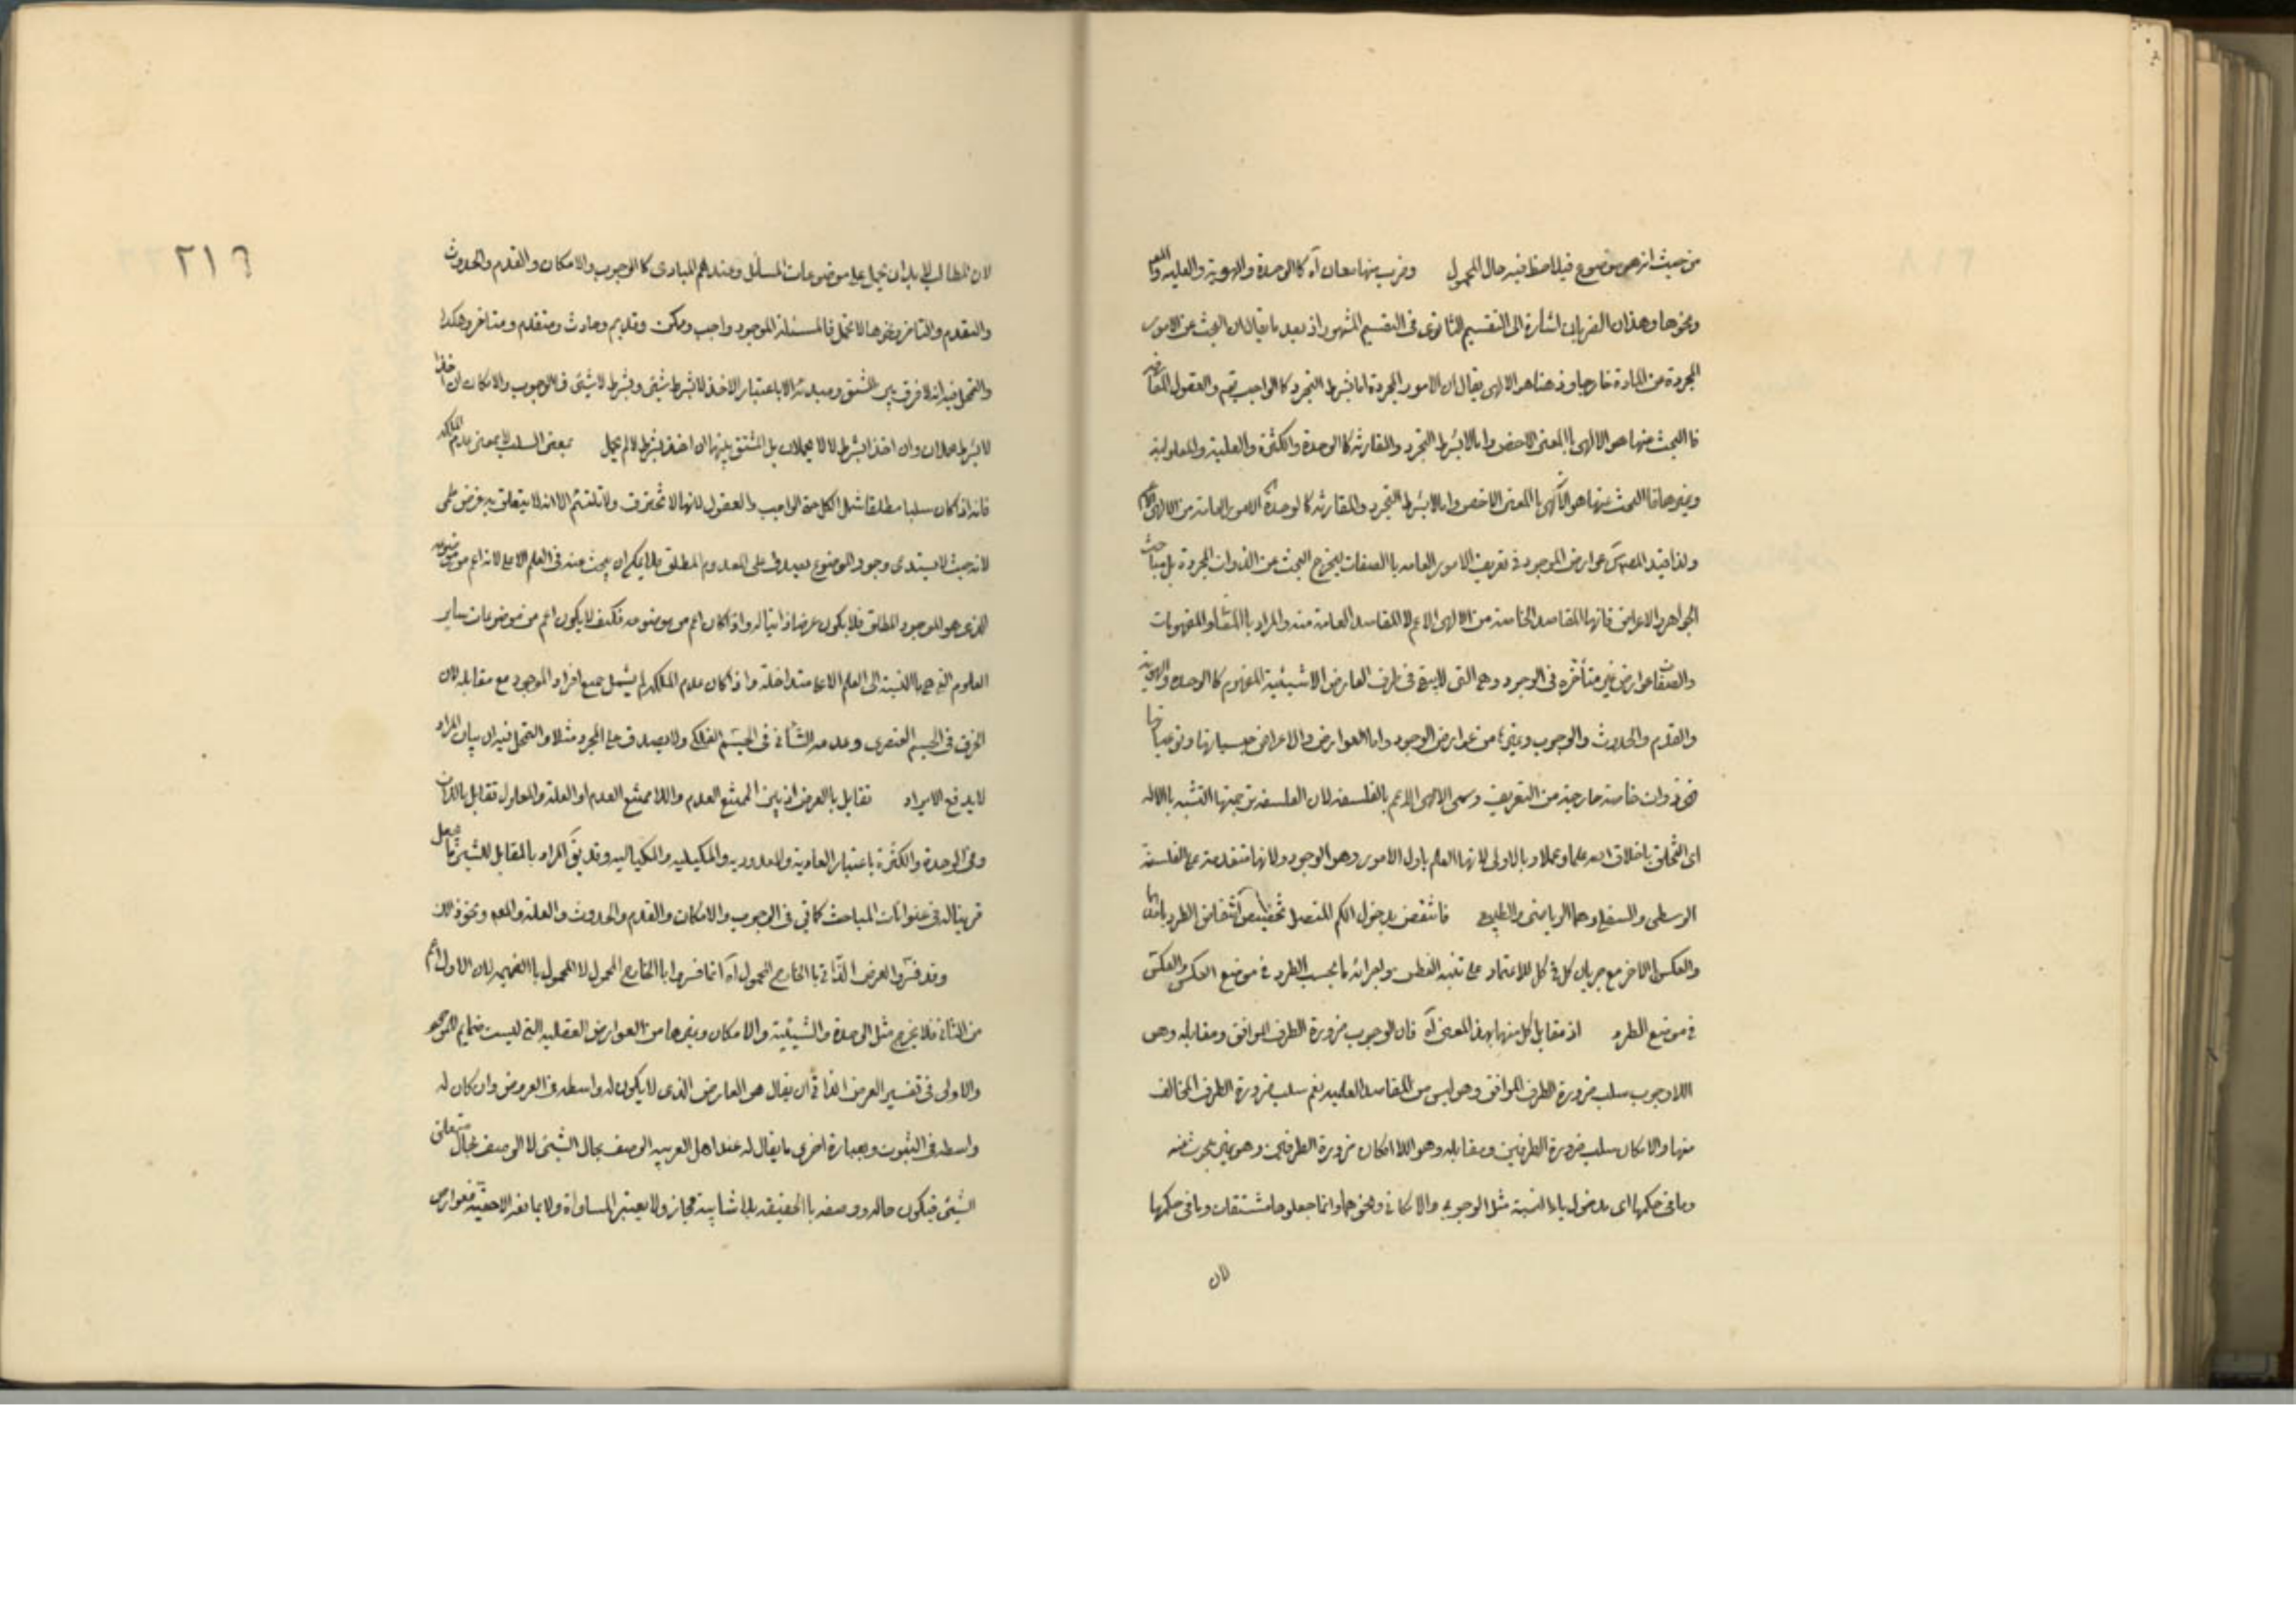 من حيث انه هو موضوع فيلاحظ فيه حال المحمول وضرب منها معان آه كالوحدة والهوية والعلية والمع
ونحوها وهذان الضربان اشارة الى التقسيم الثانوى فى التقسيم المشهور اذ بعد ما يقال ان البحث عن الامور
المجردة عن المادة خارجا وذهنا هو الالهى يقال ان الامور المجردة اما بشرط التجرد كالواجب تعم والعقول المفارقة
فالبحث منها هو الالهى باالمعنى الاخص واما لابشرط التجرد والمقارنة كالوحدة والكثرة والعلية والمعلولية
وغيرها فالبحث عنها هو الآلهى باالمعنى الاخص واما لابشرط التجرد والمقارنة كالوحدة الامور العامة من الالهى
ولذا قيد المص عوارض الموجود فى تعريف الامور العامه باالصفات ليخرج البحث عن الذوات المجردة بل مباحث
الجواهر والاعراض فانها المقاصد الخاصة من الالهى الاعم لا المقاصد العامة منه والمراد باالمشاو المفهومات
والصفات عوارض غير متأخره فى الوجود وهى التى لا يبقى فى طرف العارض الا شيئية المفهوم كالوحده والهوية
والقدم والحدوث والوجوب وغيرها من عوارض الوجود واما العوارض والاعراض
فهى ذوات خاصة خارجية من التعريف وسمى الالهى الاعم بالفلسفه لان الفلسفه من جهتها التشبه باالاله
اى التخلق باخلاق الله علما وعملا وبالاولى لانها العلم باول الامور وهو الوجود ولانها متقدمة على الفلسفة
الوسطى والسفلى وهما الرياضى والطبيعى فانتقض بدخول الكم المتصل تخصيص انتقاض الطرد باتها
والعكس الاخر مع جريان كل فى كل للاعتماد على تنبه الفطن واجرائه ما بحسب الطرد فى موضع العكس والعكس
فى موضع الطرد اذ مقابل كل منها بهذا المعنى آه فان الوجوب ضرورة الطرف الموافق ومقابله وهو
اللاوجوب سلب ضرورة الطرف الموافق وهو ليس من المقاصد العلميه نعم سلب ضرورة الطرف المخالف
منها والامكان سلب ضرورة الطرفين ومقابله وهو اللاامكان ضرورة الطرفين وهو غير مبحوث عنه
وما فى حكمها اى بدخول ياء النسبة مثل الوجوبى والامكانى ونحوهما وانما جعلوها مشتقات وما فى حكمها
لان
٢١٦
لان المطالب لابد ان تحمل على موضوعات المسائل وعندهم المبادى كالوجوب والامكان والقدم والحدوث
والتقدم والتاخر ونحوها لا تحمل فالمسئلة الموجود واجب وممكن وقديم وحادث ومتقدم ومتاخر وهكذا
والتحمل فيه انه لا فرق بين المشتق ومبدئه الا باعتبار الاخذ لابشرط شيئ وبشرط لاشيئ فالوجوب والامكان ان اخذا
لابشرط حملان وان اخذا بشرط لا لا يحملان بل المشتق منها ان اخذ بشرط لا لم يحمل بمعنى السلب لا بمعنى عدم الملكه
فانه اذا كان سلبا مطلقا شمل الكل حتى الواجب والعقول لانها لا تخترق ولا تلتئم الا انه لا يتعلق به غرض علمى
لانه حيث لا يستدعى وجود الموضوع يصدق على المعدوم المطلق فلا يمكن ان يبحث عنه فى العلم الاعلى لانه اعم من موضوعه
الذى هو الموجود المطلق فلا يكون عرضا ذاتيا له واذا كان اعم من موضوعه فكيف لا يكون اعم من موضوعات ساير
العلوم التى هى باالنسبة الى العلم الاعلى متداخلة واذا كان عدم الملكه لم يشمل جميع افراد الموجود مع مقابله لان
الخرق فى الجسم العنصرى وعدمه الشأنى فى الجسم الفلكى ولا يصدق على المجرد مثلا والتحمل فيه ان بيان المراد
لا يدفع الايراد تقابل بالعرض اذ بين الممتنع العدم واللاممتنع العدم او العلة والمعلول تقابل بالذات
وفى الوحدة والكثرة باعتبار العادية والمعدوديه والمكيليه والمكياليه وقد يق المراد بالمقابل للشيئ ما جعل
قرينا له فى عنوانات المباحث كما فى الوجوب والامكان والقدم والحدوث والعلة والمع ونحو ذلك
وقد فسروا العرض الذاتى باالخارج المحمول آه انما فسروا باالخارج المحمول لا المحمول باالضميمه لان الاول اعم
من الثانى فلا يخرج مثل الوحدة والشيئية والامكان وغيرها من العوارض العقليه التى ليست ضمايم للموضوع
والاولى فى تفسير العرض الذاتى ان يقال هو العارض الذى لا يكون له واسطه فى العروض وان كان له
واسطه فى الثبوت وبعبارة اخرى ما يقال له عند اهل العربيه الوصف بحال الشيئ لا الوصف بحال متعلق
الشيئ فيكون حاله ووصفه باالحقيقه بلا شايبة مجاز ولا يعتبر المساواة ولا يمانعه الاخصيه فعوارض